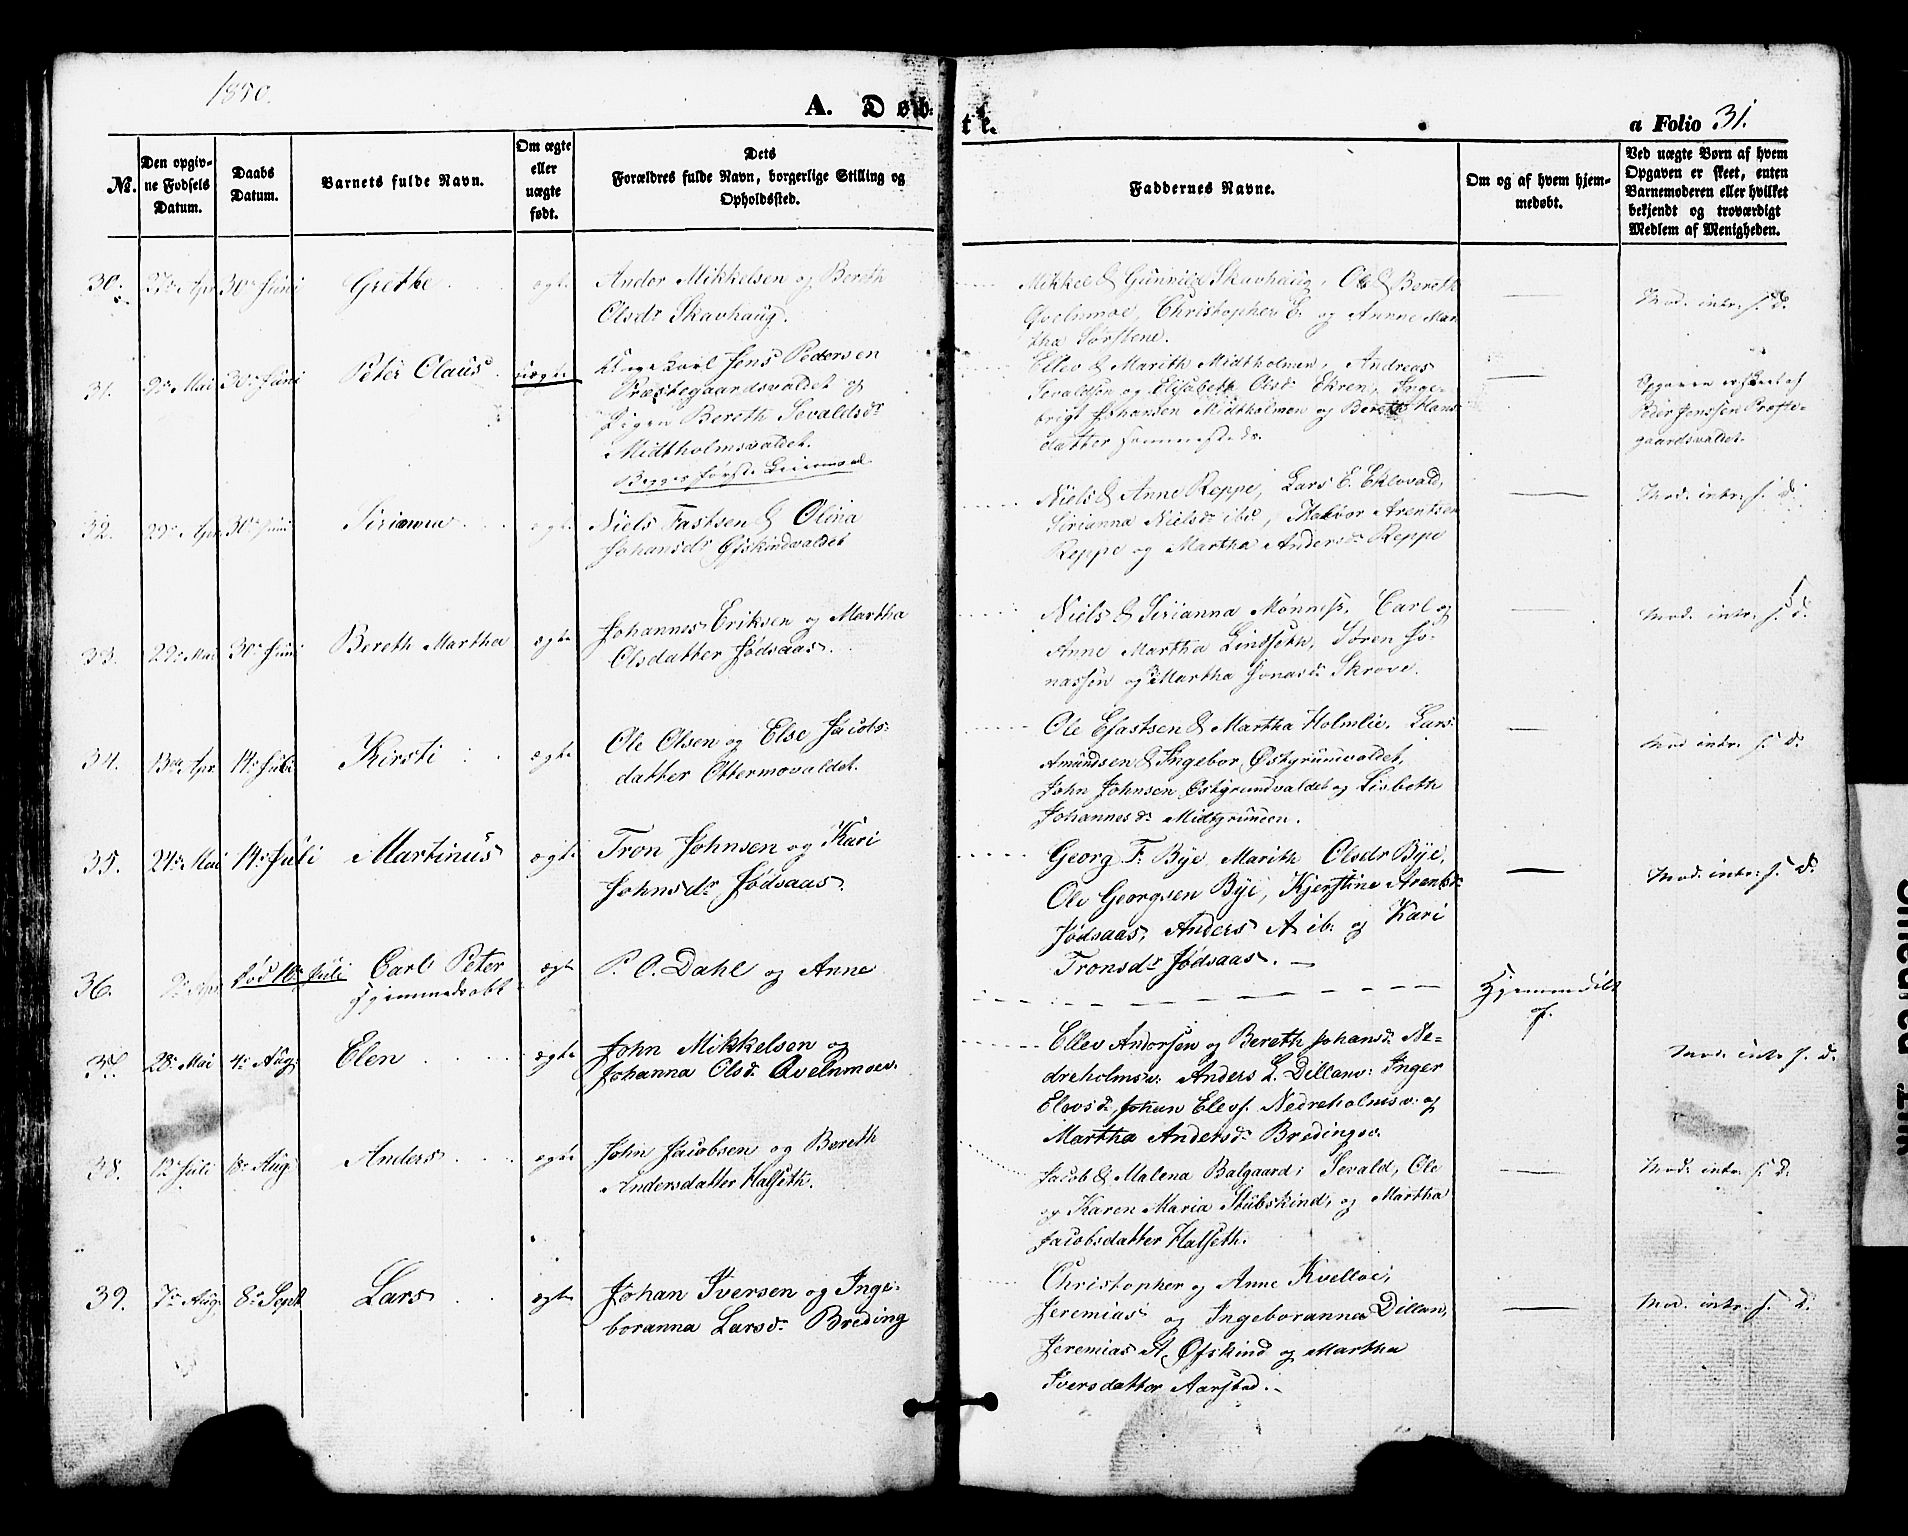 1850.
A. Døbte.
a Folio 31.
No.
Den opgivne Fødsels Datum.
Daabs Datum.
Barnets fulde Navn.
Om ægte eller uægte født.
Dets Forældres fulde Navn, borgerlige Stilling og Opholdssted.
Faddernes Navne.
Om og af hvem hjemmedøbt.
Ved uægte Børn af hvem Opgaven er skeet, enten Barnemoderen eller hvilket bekjendt og troværdigt Medlem af Menigheden.
30. 27de Apr 30te Juni Grethe ægte
Andor Mikkelsen og Bereth
Olsdr Skavhaug.
Mikkel & Gunnild Skavhaug, Ole & Bereth
Qvelnmoe, Christopher E. og Anne Mar
tha Sørstene.
Mod. intr. s. d.
31. 9de Mai 30te Juni Peter Claus uægte
Ungekarl Jens Pedersen
Præstegaardsvaldet og
Pigen Bereth Sevaldsdr
Midtholmsvaldet.
Begges første Leiermaal
Ellev & Marith Midtholmen, Andreas
Sevaldsen og Elisabeth Olsdr Ekren, Inge-
brigt Johansen Midtholmen og Bereth Hans
datter sammesteds.
Opgaven er skeet af
Peder Jenssen Præste-
gaardsvaldet.
32. 29de Apr 30te Juni Sirianna ægte
Niels Fastsen & Olina
Johansdr Øfskindvaldet
Niels & Anne Reppe, Lars E. Eklovald,
Sirianna Nielsdr ibd, Halvor Arentsen
Reppe og Martha Andersdr Reppe
Mod. intr. s. d.
33. 22de Mai 30te Juni Bereth Martha ægte
Johannes Eriksen og Martha
Olsdatter Jødsaas.
Niels & Sirianna Mønnes, Carl og
Anne Martha Lindseth, Søren Jo-
nassen og Martha Jonasdr Skrove.
Mod. intr. s. d.
34. 13de Apr 14de Juli Kirsti ægte
Ole Olsen og Else Jacobs-
datter Ottermovaldet.
Ole Efastsen & Martha Holmlie, Lars
Amundsen & Ingebor Østgrunvaldet,
John Johnsen Østgrundvaldet og Lisbeth
Johannesdr Midtgrunden.
Mod intr. s. d.
35. 24de Mai 14de Juli Martinus ægte
Tron Johnsen og Kari
Johnsdr Jødsaas.
Georg F. Bye, Marith Olsdr Bye,
Ole Georgsen Bye, Kjerstine Arentsdr
Jødsaas, Anders A. ib. og Kari
Tronsdr Jødsaas. —
Mod. intr. s. d.
36. død 10de Juli Carl Peter ægte
hjemmedøbt
P. O. Dahl og Anne
Hjemmedøbt
af.
37. 28de Mai 4de Aug: Elen ægte
John Mikkelsen og
Johanna Olsdr Qvelnmoev.
Ellev Andorsen og Bereth Johansdr Ne-
dreholmsv. Anders L. Dillanv. Inger
Elevsdr, Johan Elevs. Nedreholmsv. og
Martha Andersdr Bredingsv.
Mod. intr s. d.
38. 12te Juli 18de Aug: Anders ægte
John Jacobsen og Bereth
Andersdatter Halseth.
Jacob & Malena Balgaard, Sevald, Ole
og Karen Maria Stubskind, og Martha
Jacobsdatter Halseth.
Mod. intr. s. d.
39. 7de Aug: 8de Sept Lars ægte
Johan Iversen og Inge-
boranna Larsdr Breding
Christopher og Anne Kvelloe,
Jeremias og Ingeboranna Dillan,
Jeremias A. Øfskind og Martha
Iversdatter Aarstad. —
Mod. intr. s. d.